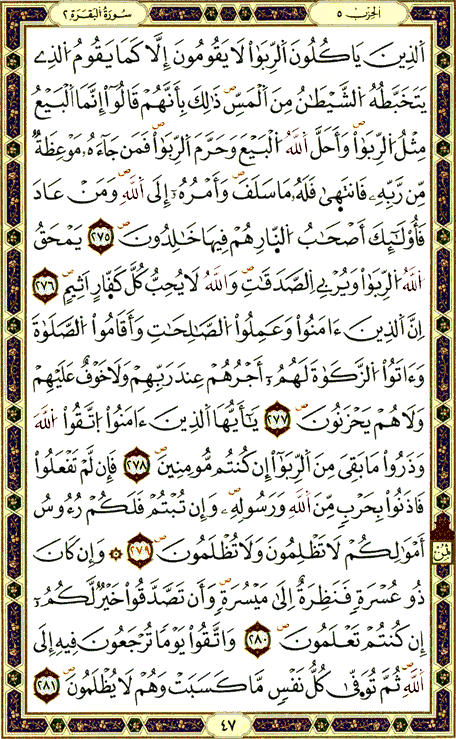 سُورَةُ البَقَرَة ٢
الحِزْب ٥
اَلذِينَ يَاكُلُونَ اَلرِّبَوٰاْ لَا يَقُومُونَ إِلَّا كَمَا يَقُومُ اُلذِے
يَتَخَبَّطُهُ اُلشَّيْطَٰنُ مِنَ اَلْمَسِّۖ ذَٰلِكَ بِأَنَّهُمْ قَالُوٓاْ إِنَّمَا اَلْبَيْعُ
مِثْلُ اُلرِّبَوٰاْۖ وَأَحَلَّ اَللَّهُ اُلْبَيْعَ وَحَرَّمَ اَلرِّبَوٰاْۖ فَمَن جَآءَهُۥ مَوْعِظَةٌ
مِّن رَّبِّهِۦ فَانتَهَىٰ فَلَهُۥ مَا سَلَفَۖ وَأَمْرُهُۥٓ إِلَى اَللَّهِۖ وَمَنْ عَادَ
فَأُوْلَٰٓئِكَ أَصْحَٰبُ اُلنّ۪ارِ هُمْ فِيهَا خَٰلِدُونَۖ ٢٧٥ يَمْحَقُ
اُللَّهُ اُلرِّبَوٰاْ وَيُرْبِے اِلصَّدَقَٰتِۖ وَاللَّهُ لَا يُحِبُّ كُلَّ كَفّ۪ارٍ اَثِيمٍۖ ٢٧٦
اِنَّ اَلذِينَ ءَامَنُواْ وَعَمِلُواْ اُلصَّٰلِحَٰتِ وَأَقَامُواْ اُلصَّلَوٰةَ
وَءَاتَوُاْ اُلزَّكَوٰةَ لَهُمُۥٓ أَجْرُهُمْ عِندَ رَبِّهِمْ وَلَا خَوْفٌ عَلَيْهِمْ
وَلَا هُمْ يَحْزَنُونَۖ ٢٧٧ يَٰٓأَيُّهَا اَلذِينَ ءَامَنُواْ اُتَّقُواْ اُللَّهَ
وَذَرُواْ مَا بَقِيَ مِنَ اَلرِّبَوٰٓاْ إِن كُنتُم مُّومِنِينَۖ ٢٧٨ فَإِن لَّمْ تَفْعَلُواْ
فَاذَنُواْ بِحَرْبٍ مِّنَ اَللَّهِ وَرَسُولِهِۦۖ وَإِن تُبْتُمْ فَلَكُمْ رُءُوسُ
أَمْوَٰلِكُمْ لَا تَظْلِمُونَ وَلَا تُظْلَمُونَۖ ٢٧٩ ۞ وَإِن كَانَ
ذُو عُسْرَةٍ فَنَظِرَةٌ اِلَىٰ مَيْسُرَةٍۖ وَأَن تَصَّدَّقُواْ خَيْرٌ لَّكُمُۥٓ
إِن كُنتُمْ تَعْلَمُونَۖ ٢٨٠ وَاتَّقُواْ يَوْماً تُرْجَعُونَ فِيهِ إِلَى
اَللَّهِۖ ثُمَّ تُوَفّ۪يٰ كُلُّ نَفْسٍ مَّا كَسَبَتْ وَهُمْ لَا يُظْلَمُونَۖ ٢٨١
ثمن
٤٧